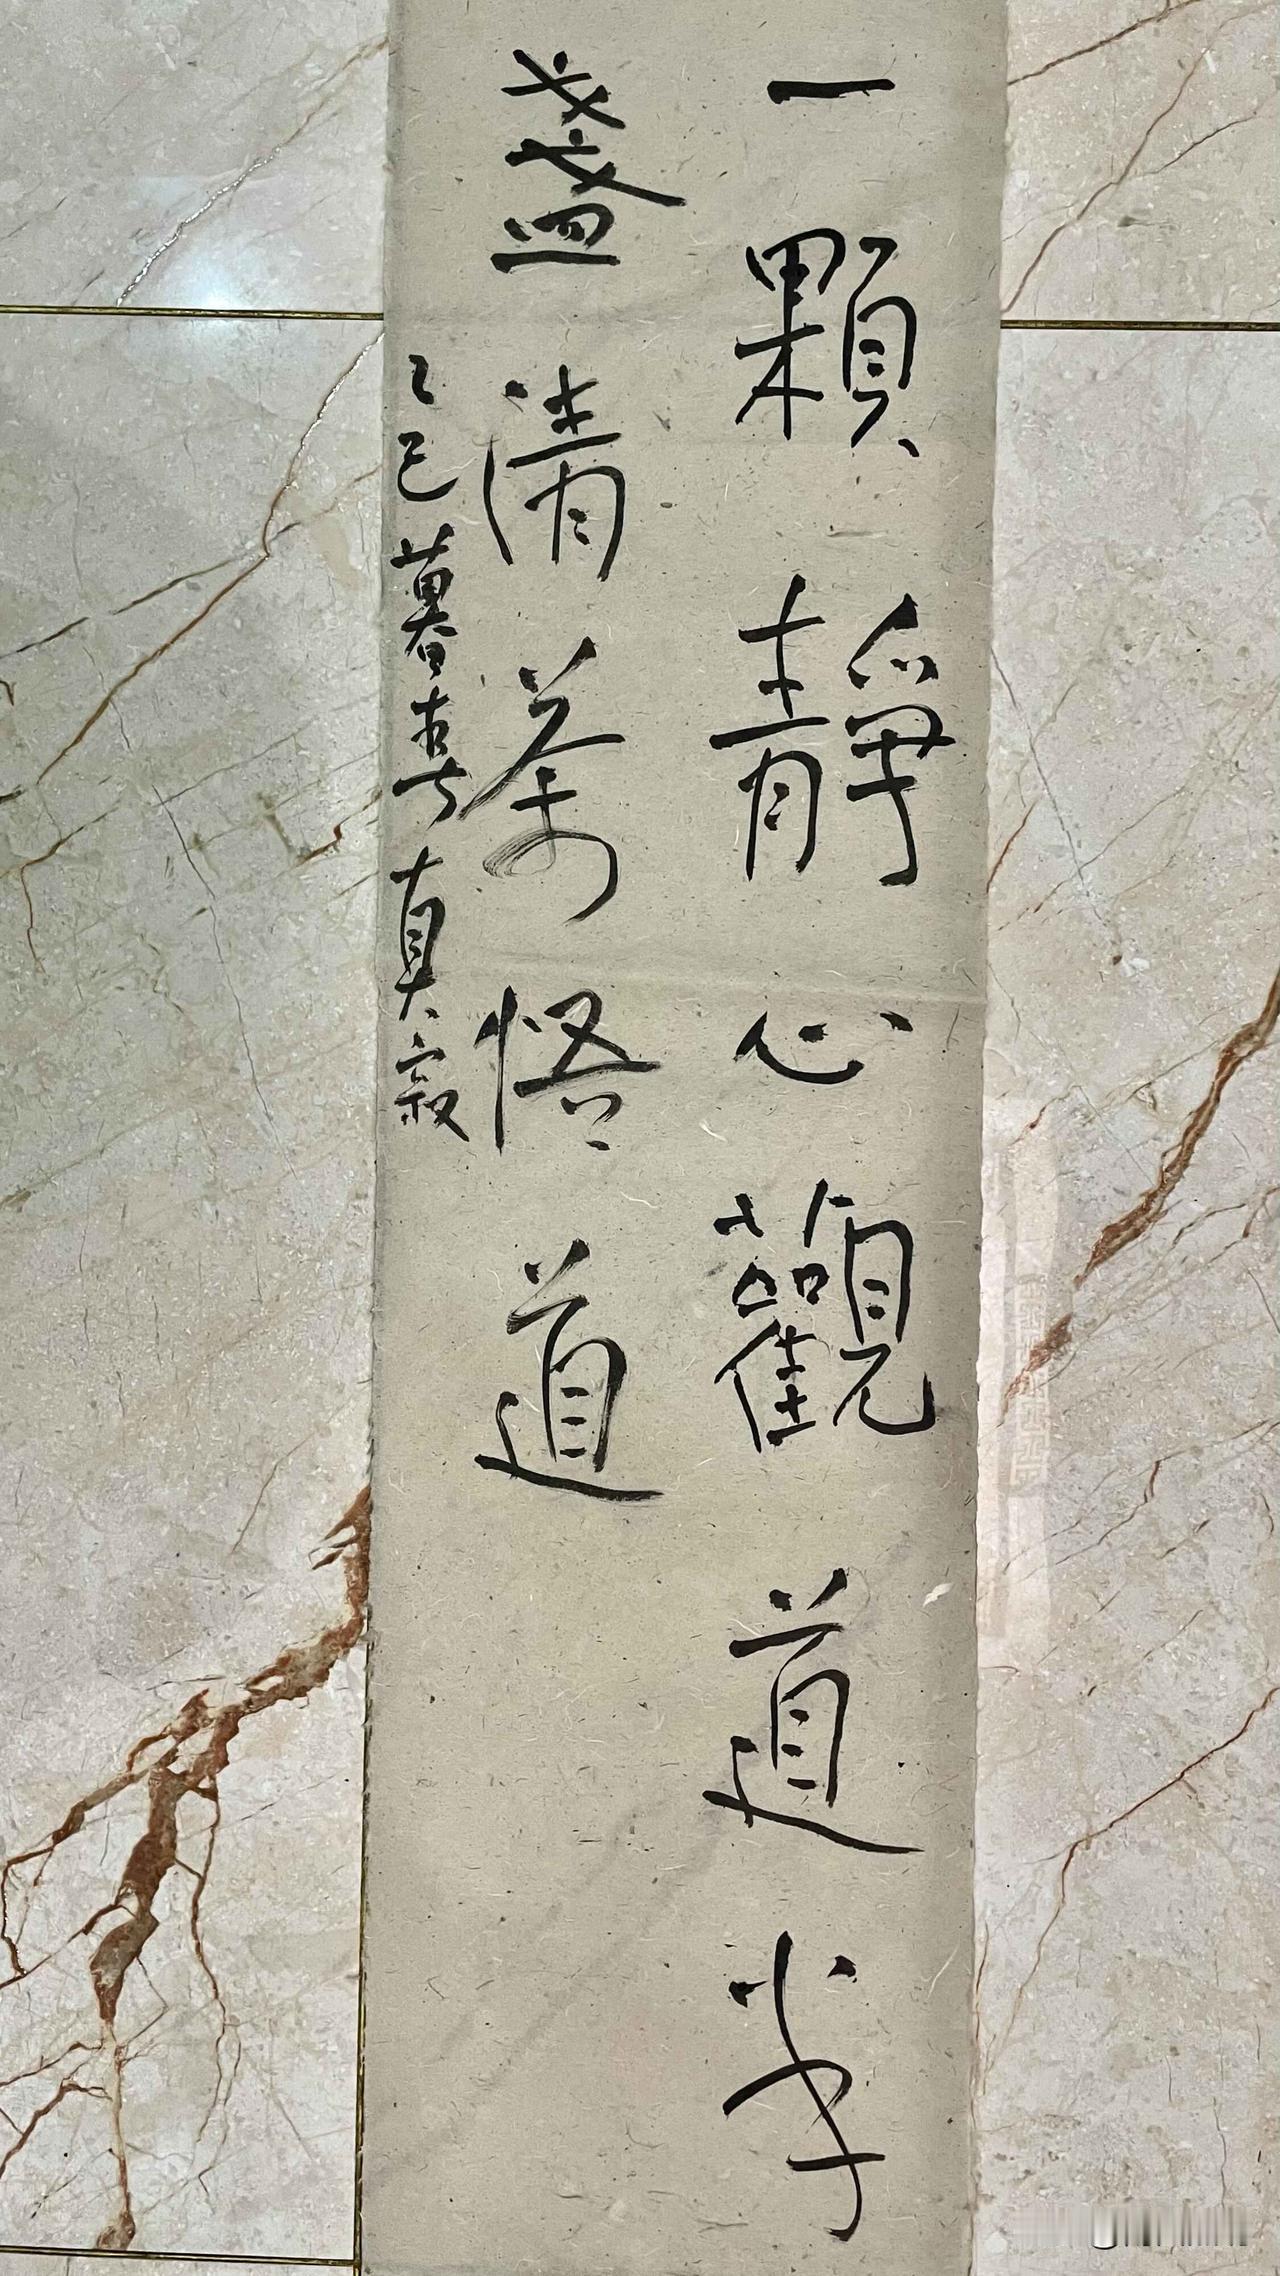 一顆靜心觀道半
盞清茶悟道
乙巳暮春真寂